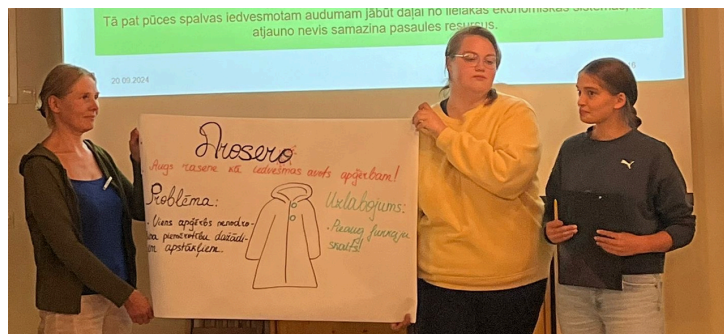 Tā pat pūces spalvas iedvesmotam audumam jābūt daļai no lielākas ekonomiskās sistēmas,
atjauno nevis samazina pasaules resursus.
20.09.2024
Drosera
Augs rasene kā iedvesmas avots apģērbam!
Problēma:
- Viens apģērbs nenodro-
šina piemērotību dažādi-
em apstākļiem.
Uzlabojums:
- Pieaug funkciju
skaits!